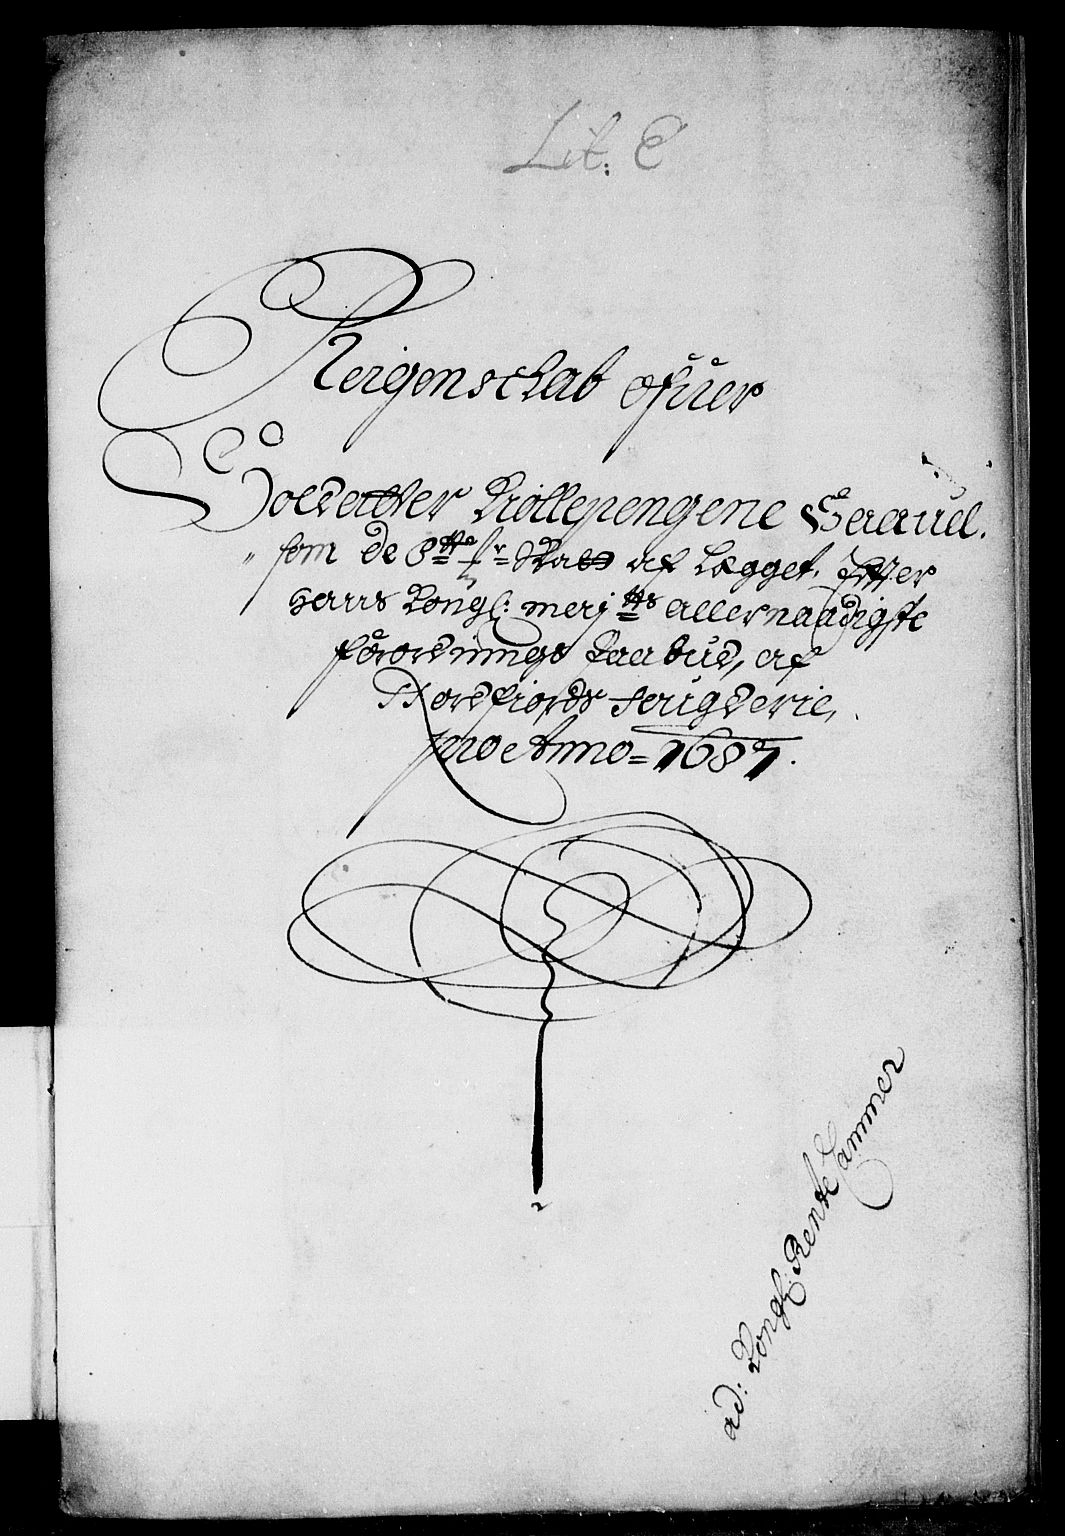 Lit: E
Reigenschab ofuer
Soldatter Kiollepengene Saauel.
som de 8 sr Skatt af Lægget, Efter
Hans Kongl: mayttes allernaadigste
forordnings Paabud, af
Nordfiords fougderie,
pro Anno = 1687.
ad: Kongl: Rente Cammer